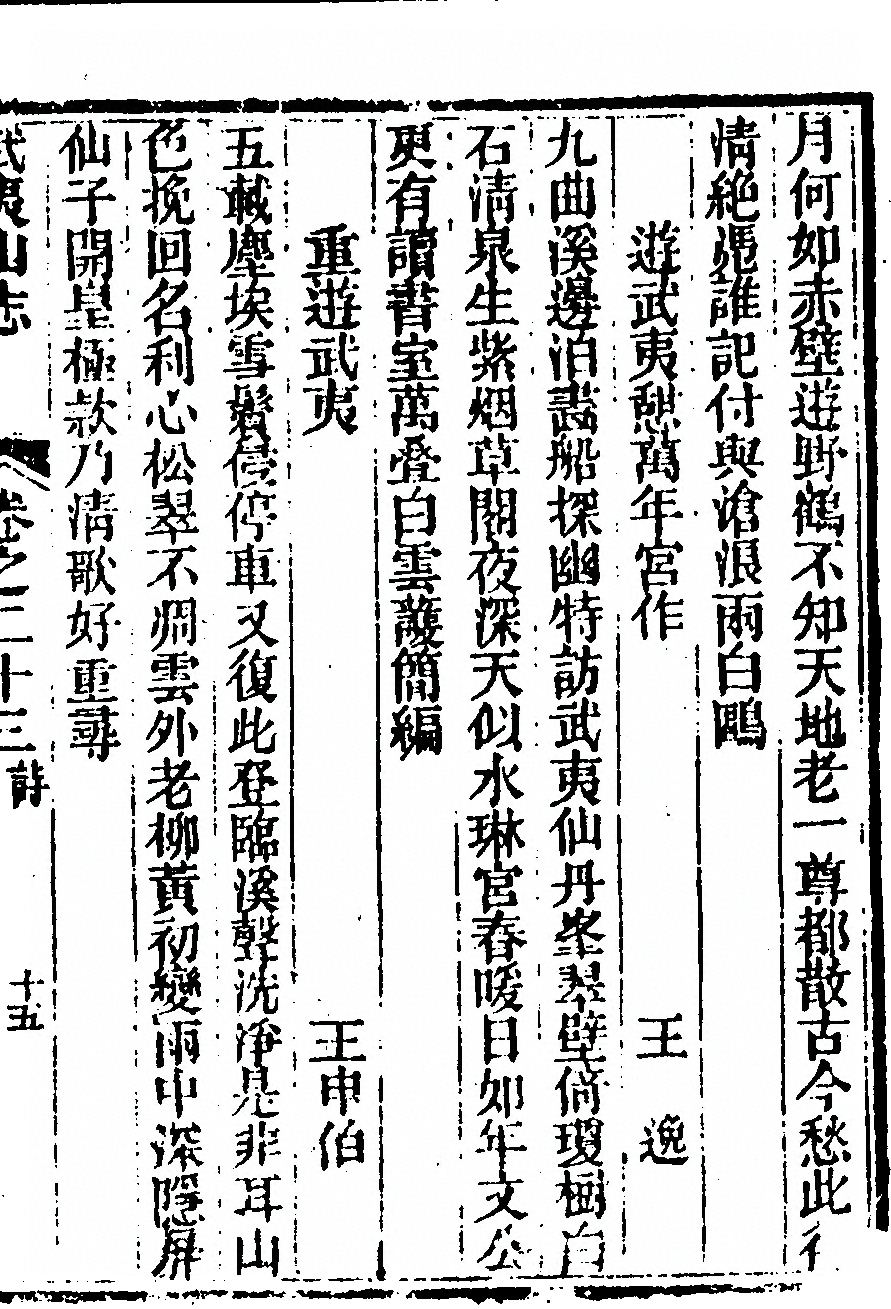 月何如赤壁遊野鶴不知天地老一尊都散古今愁此行
清絶憑誰記付與滄浪兩白鷗
遊武夷憩萬年宮作 王逸
九曲溪邊泊畵船探幽特訪武夷仙丹峯翠壁倚瓊樹白
石清泉生紫烟草閣夜深天似水琳宮春暖日如年文公
更有讀書室萬叠白雲護簡編
重遊武夷 王申伯
五載塵埃雪鬢侵停車又復此登臨溪聲洗淨是非耳山
色挽回名利心松翠不凋雲外老柳黃初變雨中深隱屏
仙子開皇極款乃清歌好重尋
武夷山志 卷之二十三 詩 十五